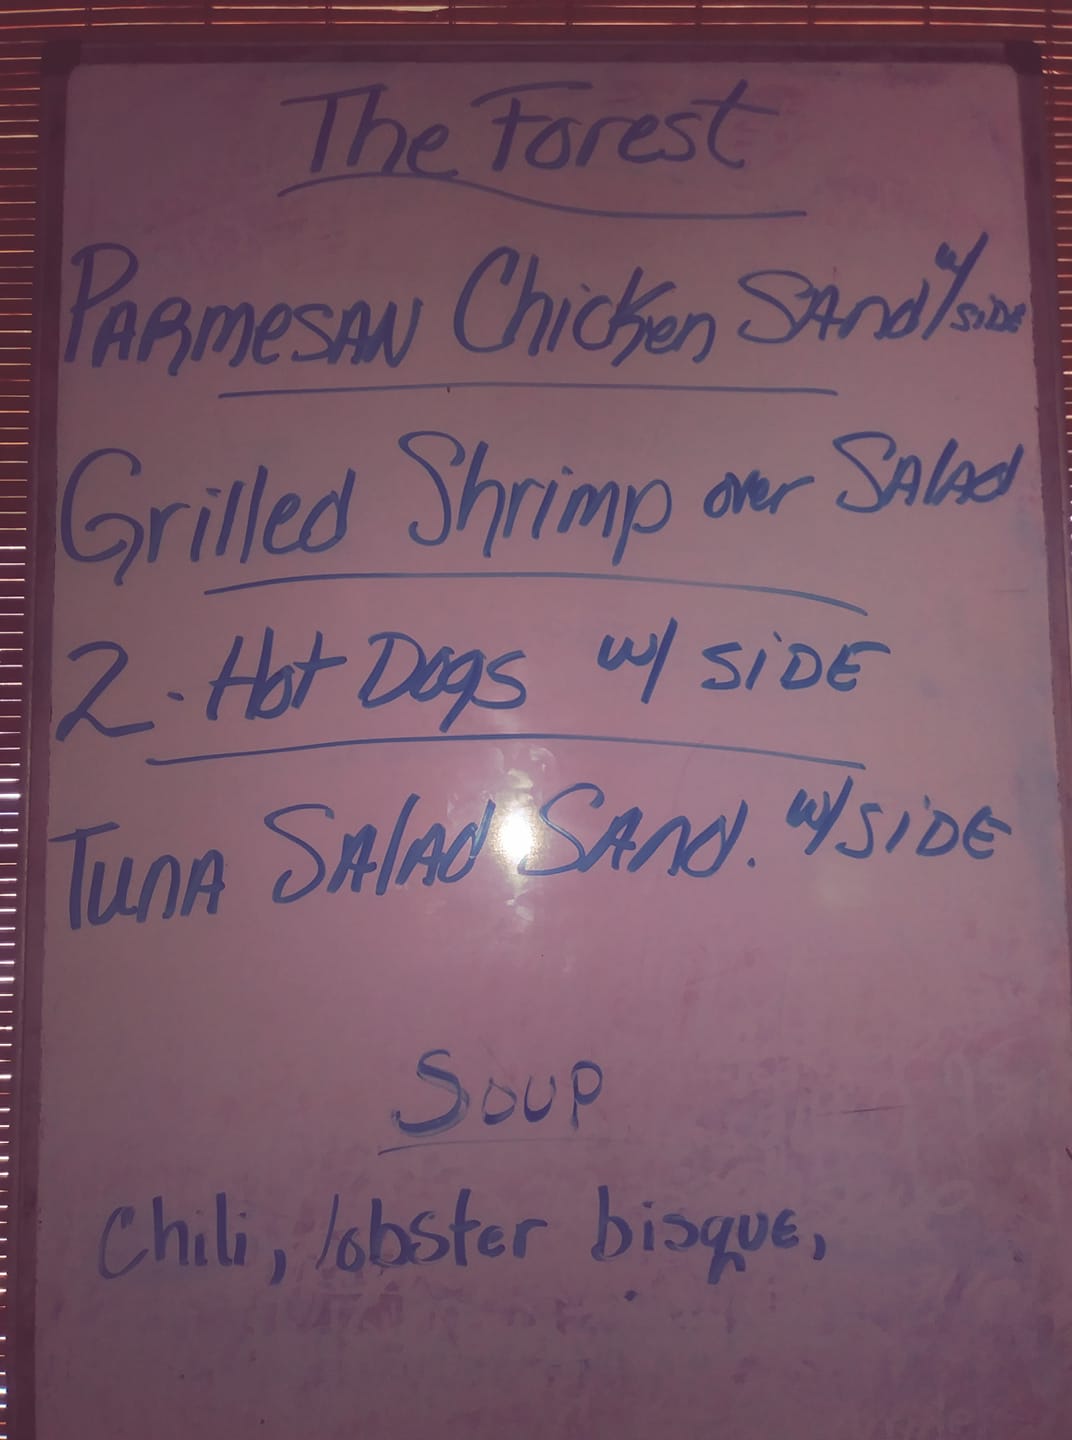 The Forest
Parmesan Chicken Sand w/ side
Grilled Shrimp over Salad
2 - Hot Dogs w/ SiDE
Tuna Salad Sand. w/ SiDE
Soup
Chili, lobster bisque,